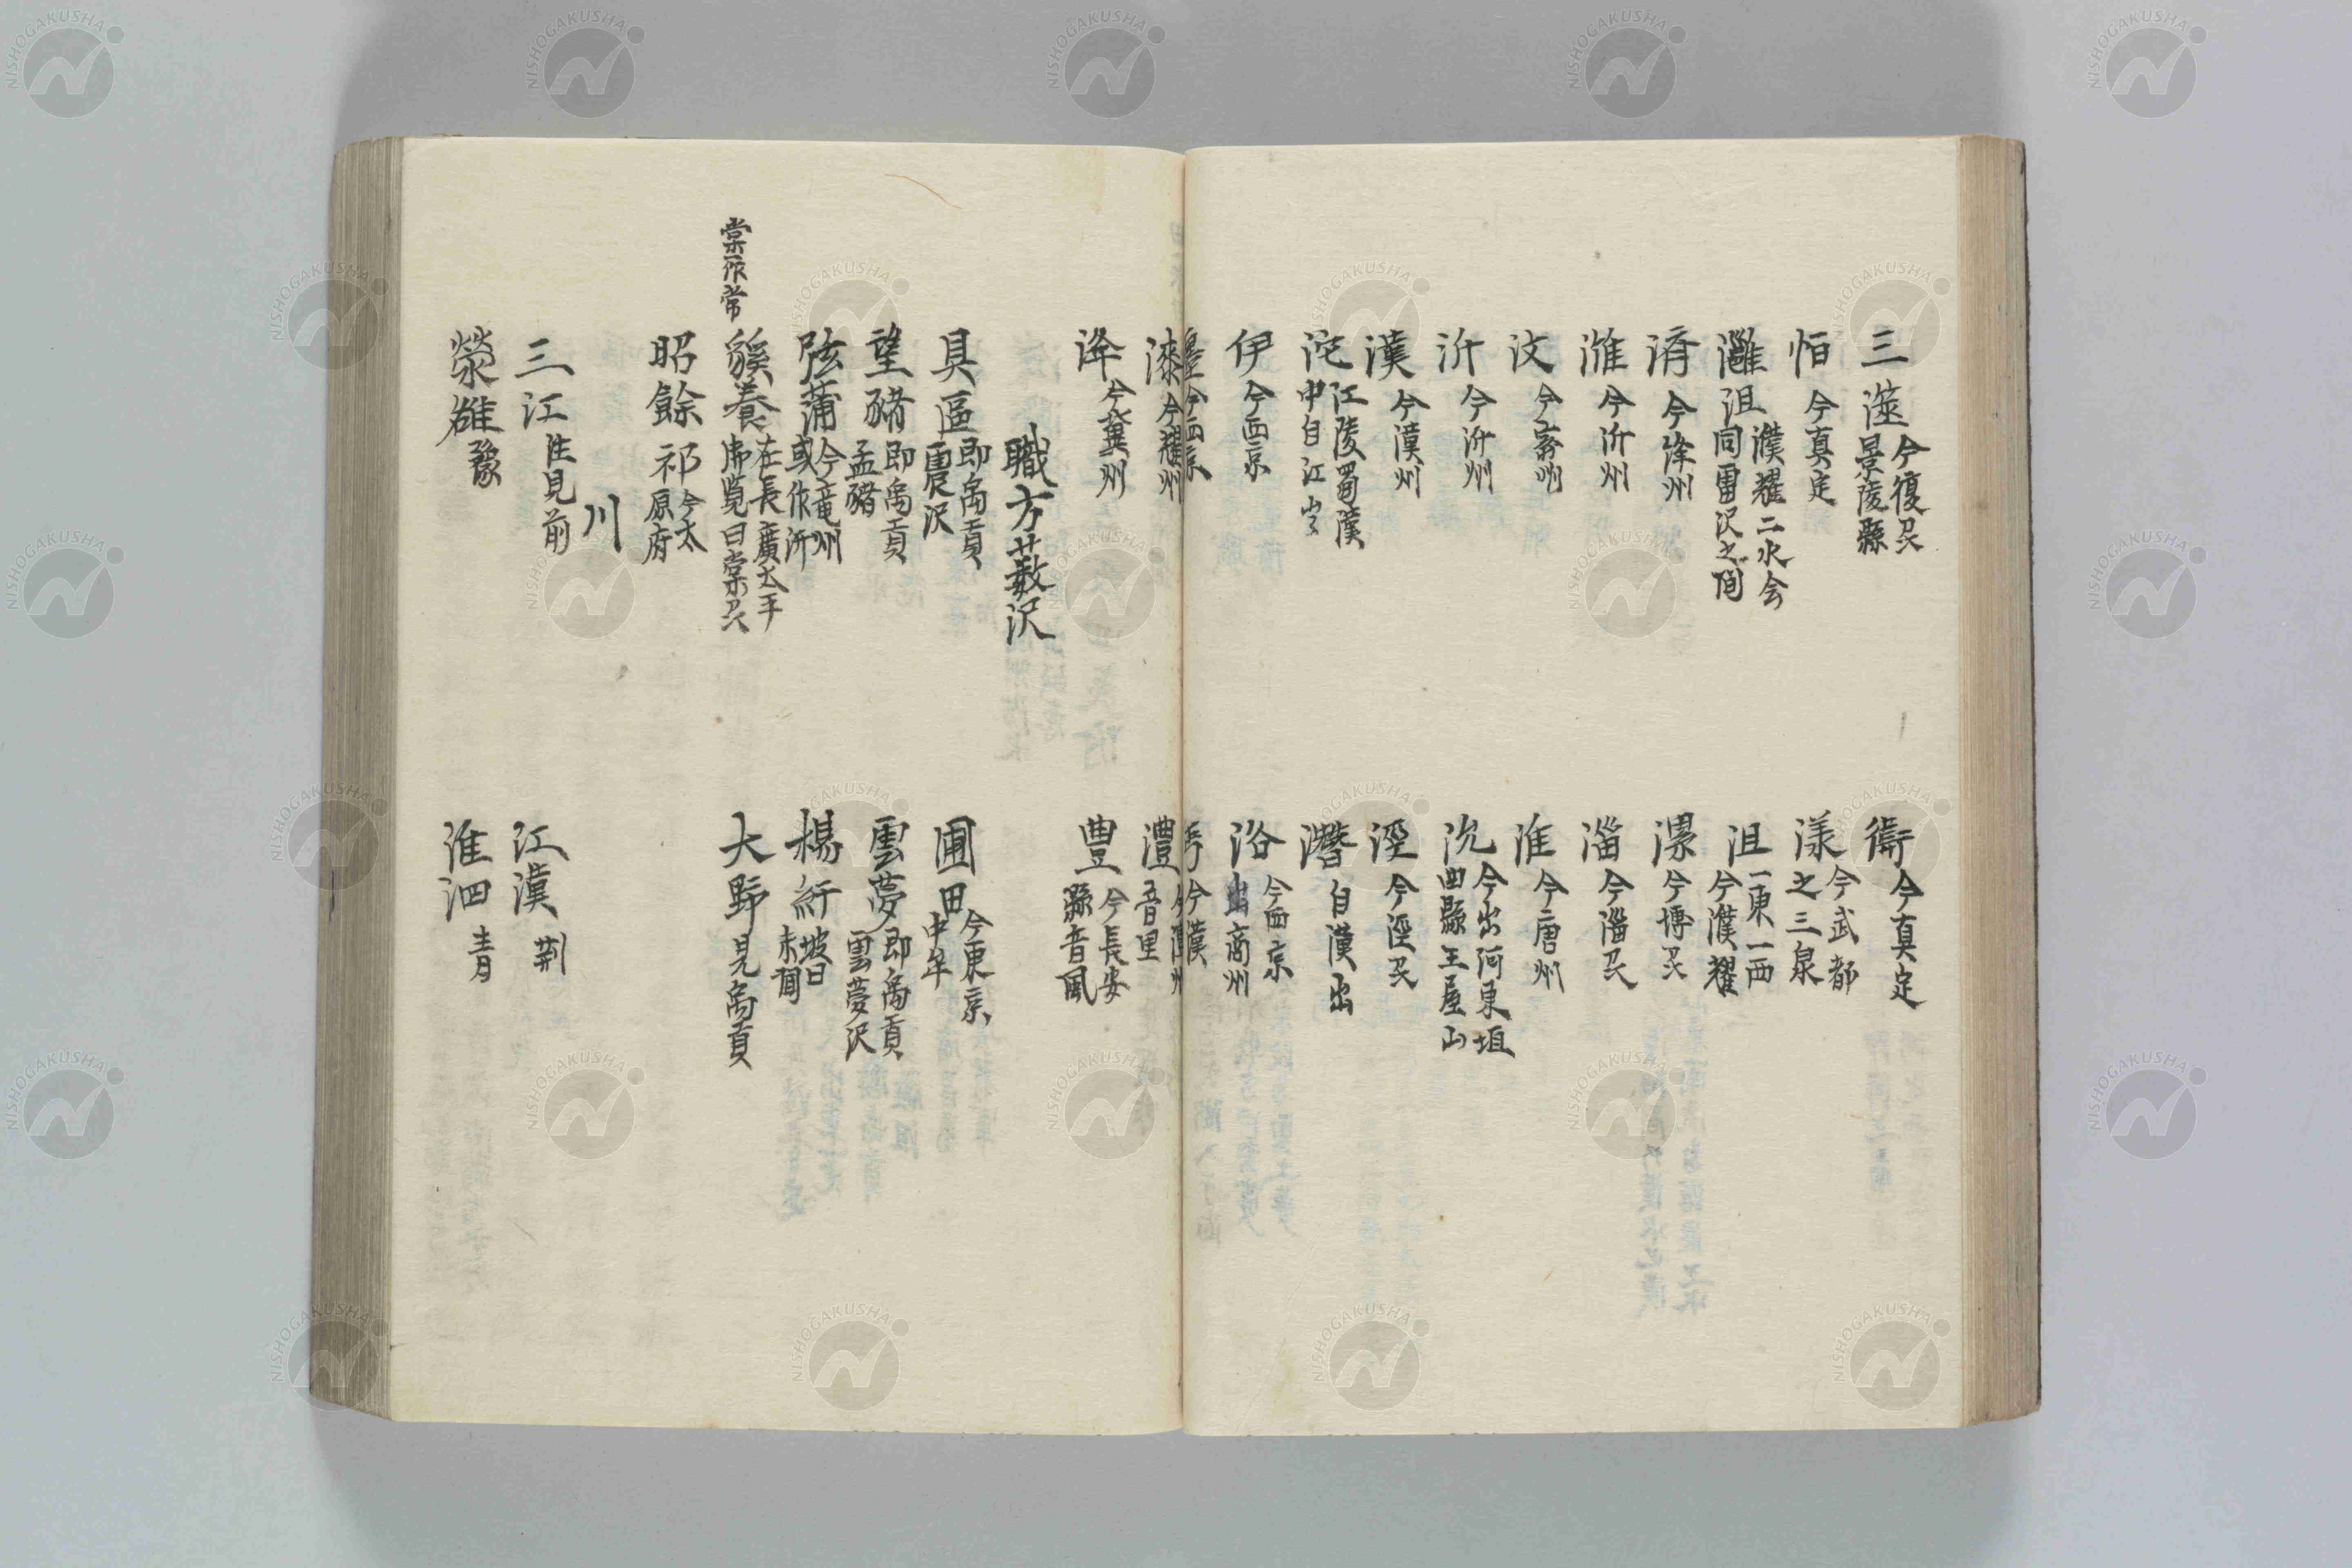 三澨 今復州景陵縣
衛 今真定
恒 今真定
漾 今武都之三泉
灉沮 濮耀二水会同雷沢之間
沮 一東一西今濮耀
済 今絳州
漯 今博州
濰 今沂州
淄 今淄州
汶 今兖州
淮 今唐州
沂 今沂州
沇 今出河東垣曲縣王屋山
漢 今漢州
涇 今涇州
沱 江陵蜀漢中自江出
潛 自漢出
伊 今西京
洛 今西京出商州
今西京
漆 今耀州
澧 音里
洚 今冀州
豊 今長安縣音風
職方薮沢
具區 即禹貢震沢
圃田 今東京中牟
望豬 即禹貢孟豬
雲夢 即禹貢雲夢沢
弦蒲 今竜州或作汧
楊紆 坡曰未聞
棠一作常
貕養 在長廣
大野 見禹貢
昭餘祁 今太原府
川
三江 注見前
江漢 荆
滎雒 豫
淮泗 青
NISHOGAKUSHA